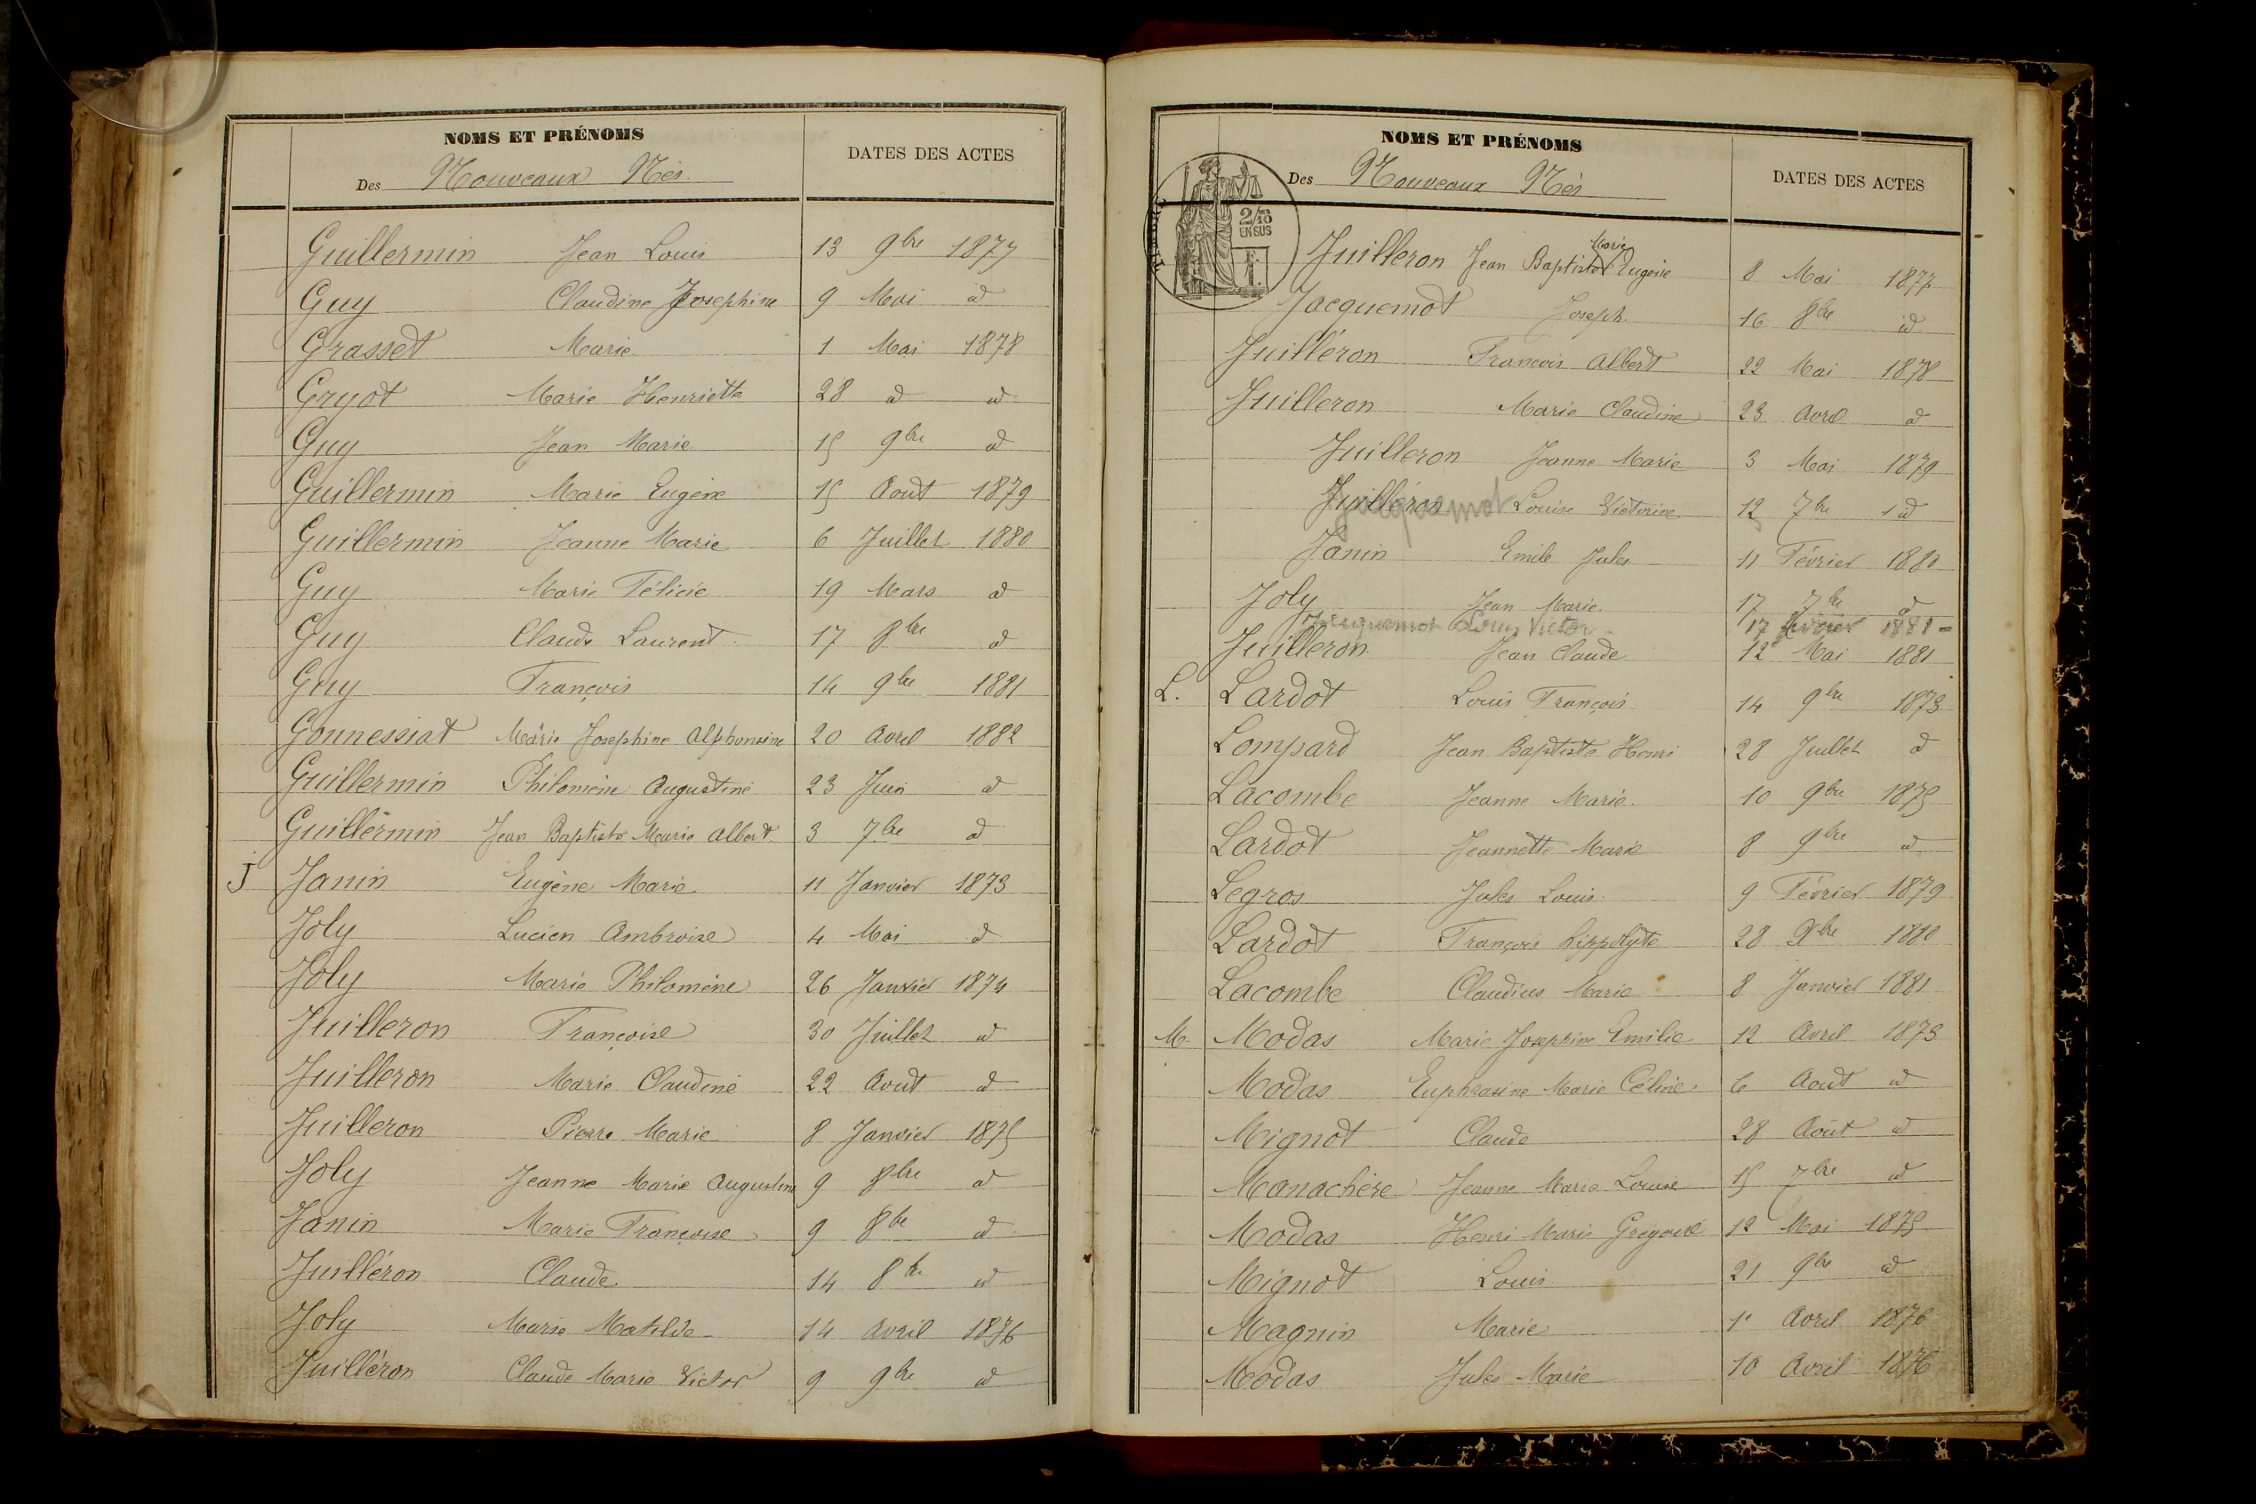 NOMS ET PRÉNOMS
Des Nouveaux Nés.
DATES DES ACTES
Guillermin Jean Louis 13 9bre 1877
Guy Claudine Josephine 9 Mai id
Grasset Marie 1 Mai 1878
Gryot Marie Henriette 28 id id
Guy Jean Marie 15 9bre id
Guillermin Marie Eugène 15 Août 1879
Guillermin Jeanne Marie 6 Juillet 1880
Guy Marie Félicie 19 Mars id
Guy Claude Laurent 17 8bre id
Guy François 14 9bre 1881
Gonnessiat Marie Josephine Alphonsine 20 Avril 1882
Guillermin Philomène Augustine 23 Juin id
Guillermin Jean Baptiste Marie Albert 3 7bre id
J Janin Eugène Marie 11 Janvier 1873
Joly Lucien Ambroise 4 Mai id
Joly Marie Philomène 26 Janvier 1874
Juilleron Françoise 30 Juillet id
Juilleron Marie Claudine 22 Août id
Juilleron Pierre Marie 8 Janvier 1875
Joly Jeanne Marie Augustine 9 8bre id
Janin Marie Françoise 9 8bre id
Juilléron Claude 14 8bre id
Joly Marie Matilde 14 Avril 1876
Juilléron Claude Marie Victor 9 9bre id
NOMS ET PRÉNOMS
Des Nouveaux Nés
DATES DES ACTES
2/10
EN SUS
Marie
Juilleron Jean Baptiste Eugène 8 Mai 1877
Jacquemot Joseph 16 8bre id
Juilléron François Albert 22 Mai 1878
Juilleron Marie Claudine 23 Avril id
Juilleron Jeanne Marie 3 Mai 1879
Juilléron Jacquemot Louise Victorine 12 7bre id
Janin Emile Jules 11 Février 1880
Joly Jean Marie 17 7bre id
Jacquemot Louis Victor 17 février 1881
Juilleron Jean Claude 12 Mai 1881
L. Lardot Louis François 14 9bre 1873
Lompard Jean Baptiste Henri 28 Juillet id
Lacombe Jeanne Marie 10 9bre 1875
Lardot Jeannette Marie 8 9bre id
Legros Jules Louis 9 Février 1879
Lardot François Hippolyte 28 9bre 1880
Lacombe Claudius Marie 8 Janvier 1881
M Modas Marie Josephine Emilie 12 Avril 1873
Modas Euphrasine Marie Céline 6 Août id
Mignot Claude 28 Août id
Manachère Jeanne Marie Louise 15 7bre id
Modas Henri Marie Gregoire 12 Mai 1875
Mignot Louis 21 9bre id
Magnin Marie 1r Avril 1876
Modas Jules Marie 10 Avril 1876